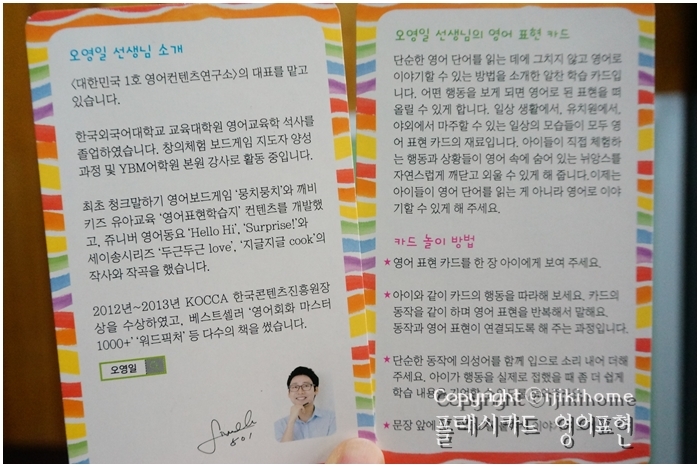 오영일 선생님 소개
〈대한민국 1호 영어컨텐츠연구소〉의 대표를 맡고
있습니다.
한국외국어대학교 교육대학원 영어교육학 석사를
졸업하였습니다. 창의체험 보드게임 지도자 양성
과정 및 YBM어학원 본원 강사로 활동 중입니다.
최초 청크말하기 영어보드게임 '뭉치뭉치'와 깨비
키즈 유아교육 '영어표현학습지' 컨텐츠를 개발했
고, 쥬니버 영어동요 'Hello Hi', 'Surprise!'와
세이송시리즈 '두근두근 love', '지글지글 cook'의
작사와 작곡을 했습니다.
2012년~2013년 KOCCA 한국콘텐츠진흥원장
상을 수상하였고, 베스트셀러 '영어회화 마스터
1000+' '워드픽처' 등 다수의 책을 썼습니다.
오영일
오영일 선생님의 영어 표현 카드
단순한 영어 단어를 읽는 데에 그치지 않고 영어로
이야기할 수 있는 방법을 소개한 알찬 학습 카드입
니다. 어떤 행동을 보게 되면 영어로 된 표현을 떠
올릴 수 있게 합니다. 일상 생활에서, 유치원에서,
야외에서 마주할 수 있는 일상의 모습들이 모두 영
어 표현 카드의 재료입니다. 아이들이 직접 체험하
는 행동과 상황들이 영어 속에 숨어 있는 뉘앙스를
자연스럽게 깨닫고 외울 수 있게 해 줍니다.이제는
아이들이 영어 단어를 읽는 게 아니라 영어로 이야
기할 수 있게 해 주세요.
카드 놀이 방법
★영어 표현 카드를 한 장 아이에게 보여 주세요.
★아이와 같이 카드의 행동을 따라해 보세요. 카드의
동작을 같이 하며 영어 표현을 반복해서 말해요.
동작과 영어 표현이 연결되도록 해 주는 과정입니다.
★단순한 동작에 의성어를 함께 입으로 소리 내어 더해
주세요. 아이가 행동을 실제로 접했을 때 좀 더 쉽게
학습 내용
★문장 앞에
Copyright ©ijikihome
플래시카드 영어표현